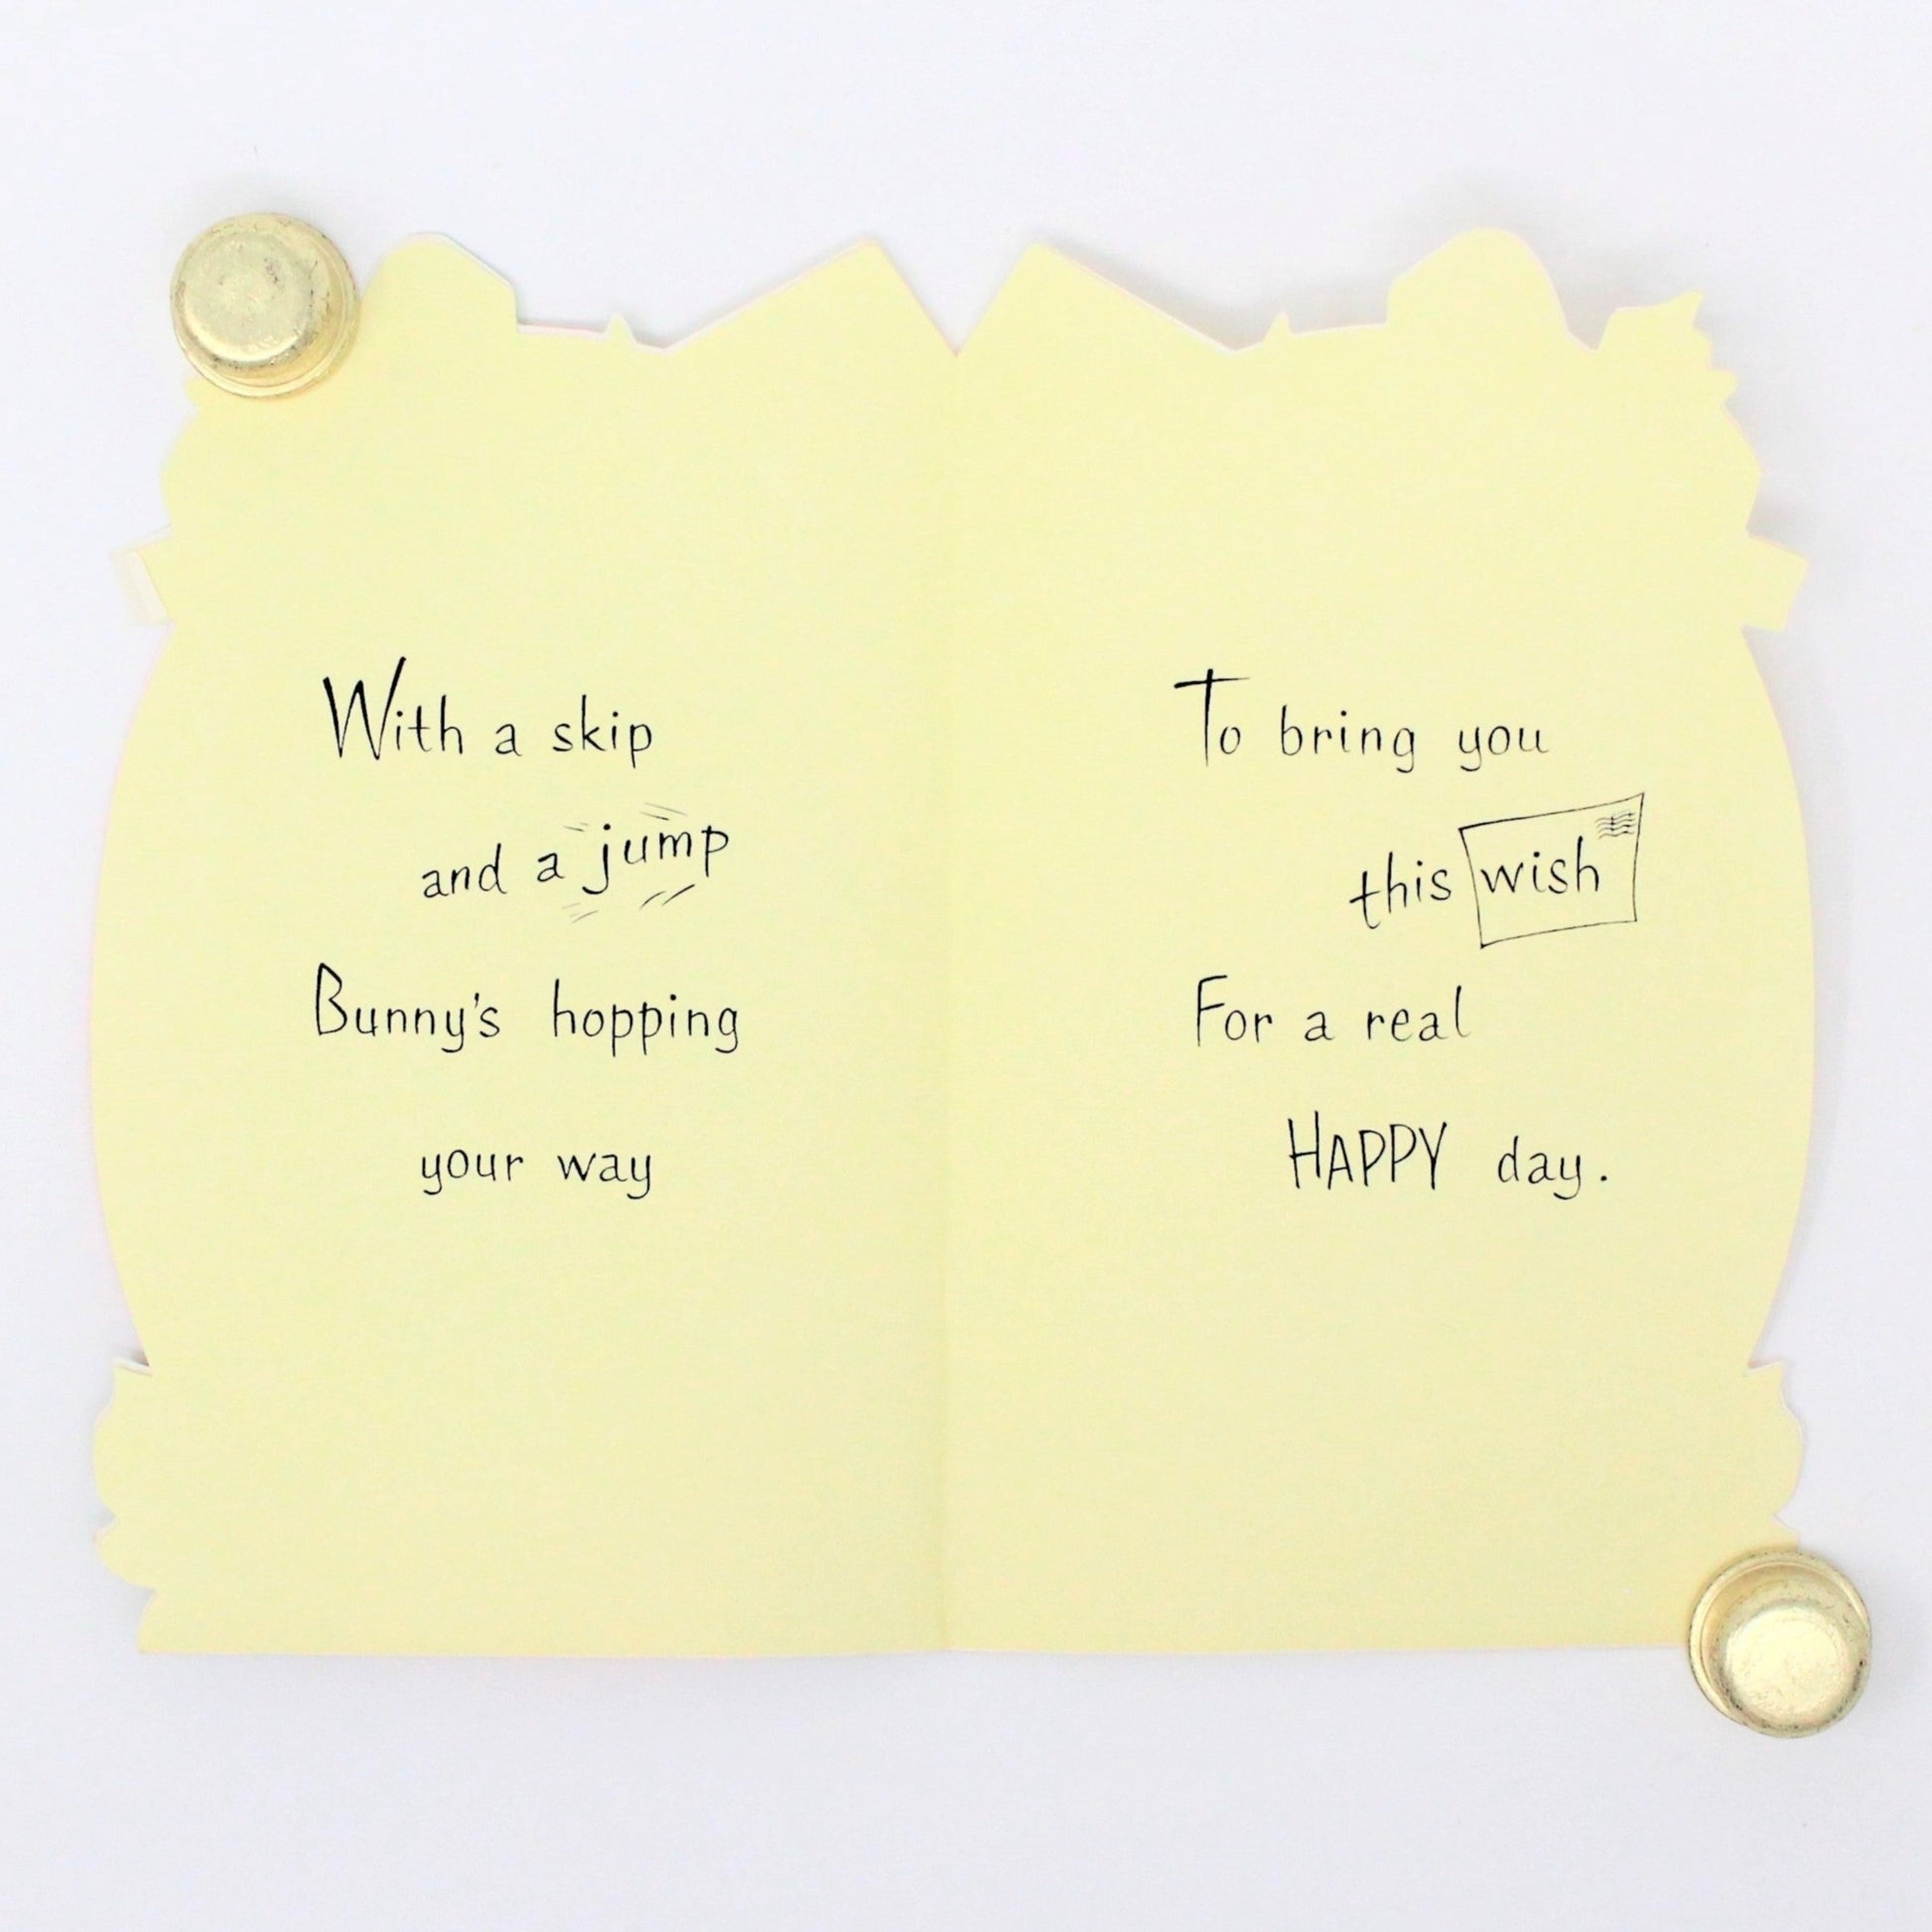 With a skip
and a jump
Bunny's hopping
your way
To bring you
this wish
For a real
HAPPY day.